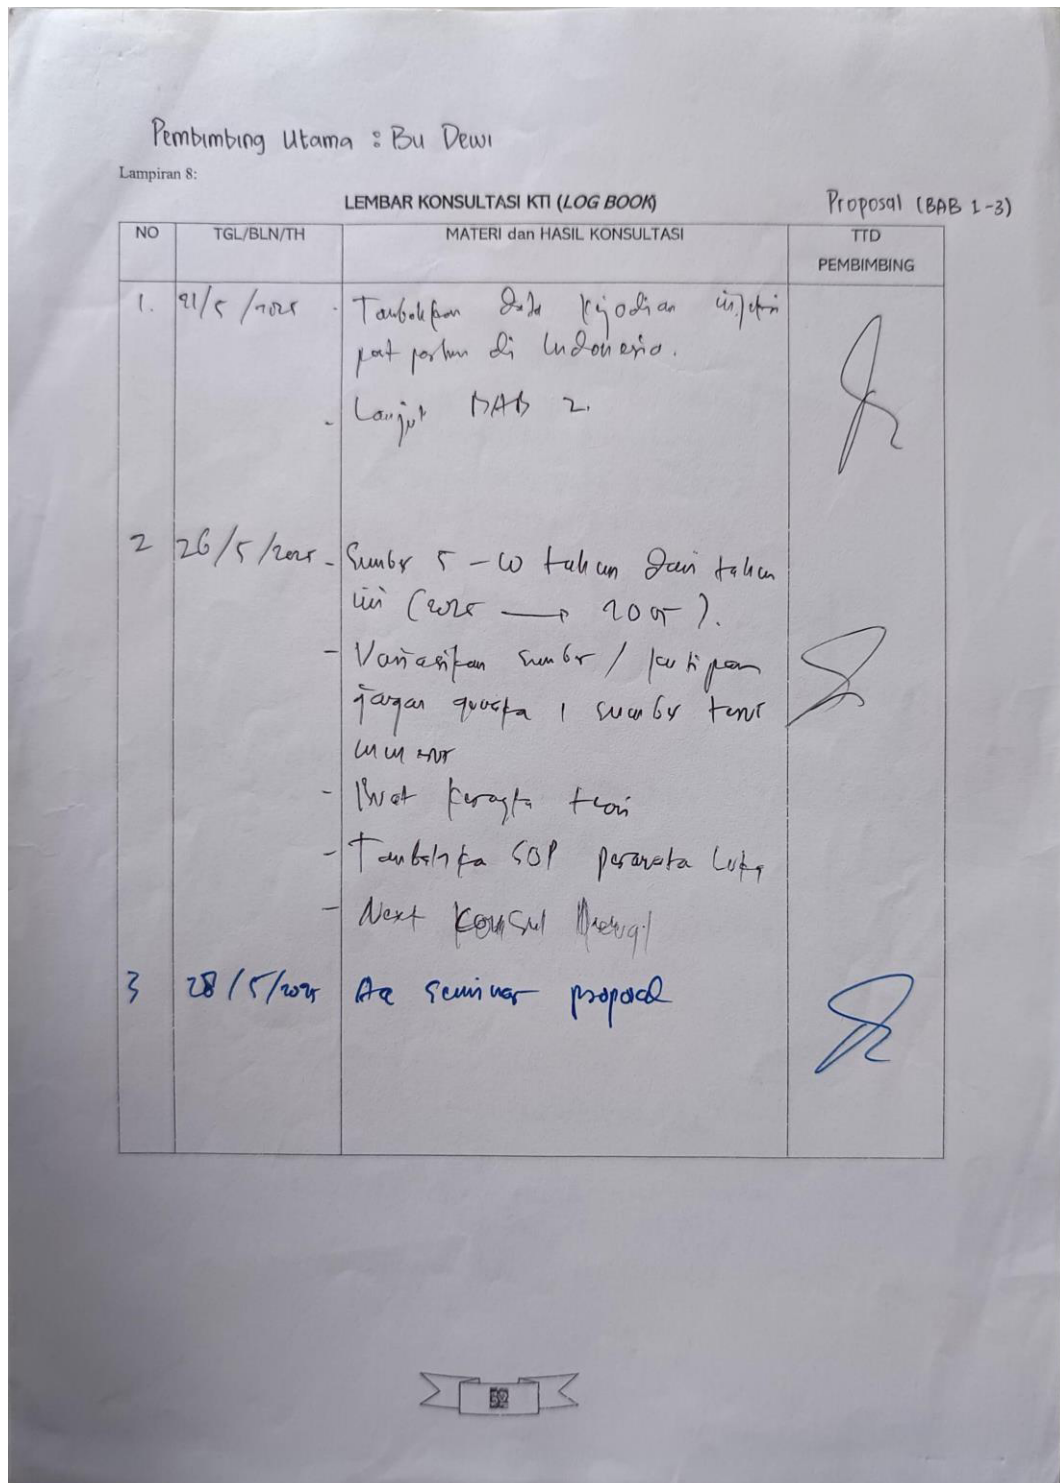 Pembimbing Utama : Bu Dewi
Lampiran 8:
LEMBAR KONSULTASI KTI (LOG BOOK)
Proposal (BAB 1-3)
NO TGL/BLN/TH MATERI dan HASIL KONSULTASI TTD PEMBIMBING
1. 21/5/2025 - Tambahkan data kejadian infeksi
post partum di Indonesia.
- Lanjut BAB 2.
2 26/5/2025 - Sumber 5 - 10 tahun dari tahun
ini (2025 → ).
- Variasikan sumber / kutipan
jangan 1 sumber terus
menerus
- Buat kerangka teori
- Tambahka SOP perawata luka
- Next Konsul
3 28/5/2025 Acc seminar proposal
52